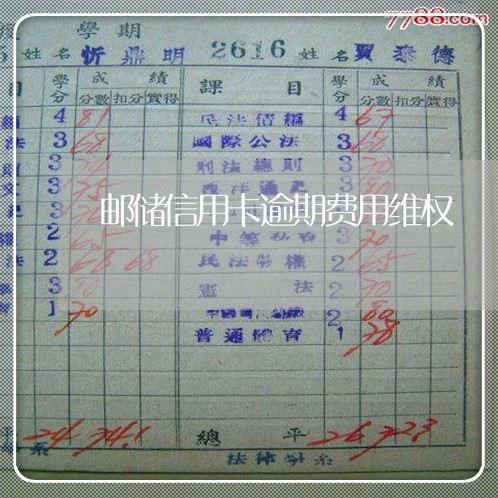 7788.com
學期
姓名 忻鼎明 2616 姓名 賈泰德
目 學分 成績 課目 學分 成績
分數 扣分 實得 分數 扣分 實得
4 81 民法債編 4 67
法 3 68 國際公法 3 60
3 刑法總則 3 70
3 75 3 80
邮储信用卡逾期费用维权
3 3
2 65 3 70
法 2 68 68 民法物權 2 65
3 80 憲法 2 70
1 70 2 80
普通體育 1 78
平 24 74.1 總平 26 72.3
系 法律學系